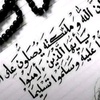 الله وملائكته يصلون على
يا أيها الذين آمنوا
عليه وسلموا تسليما